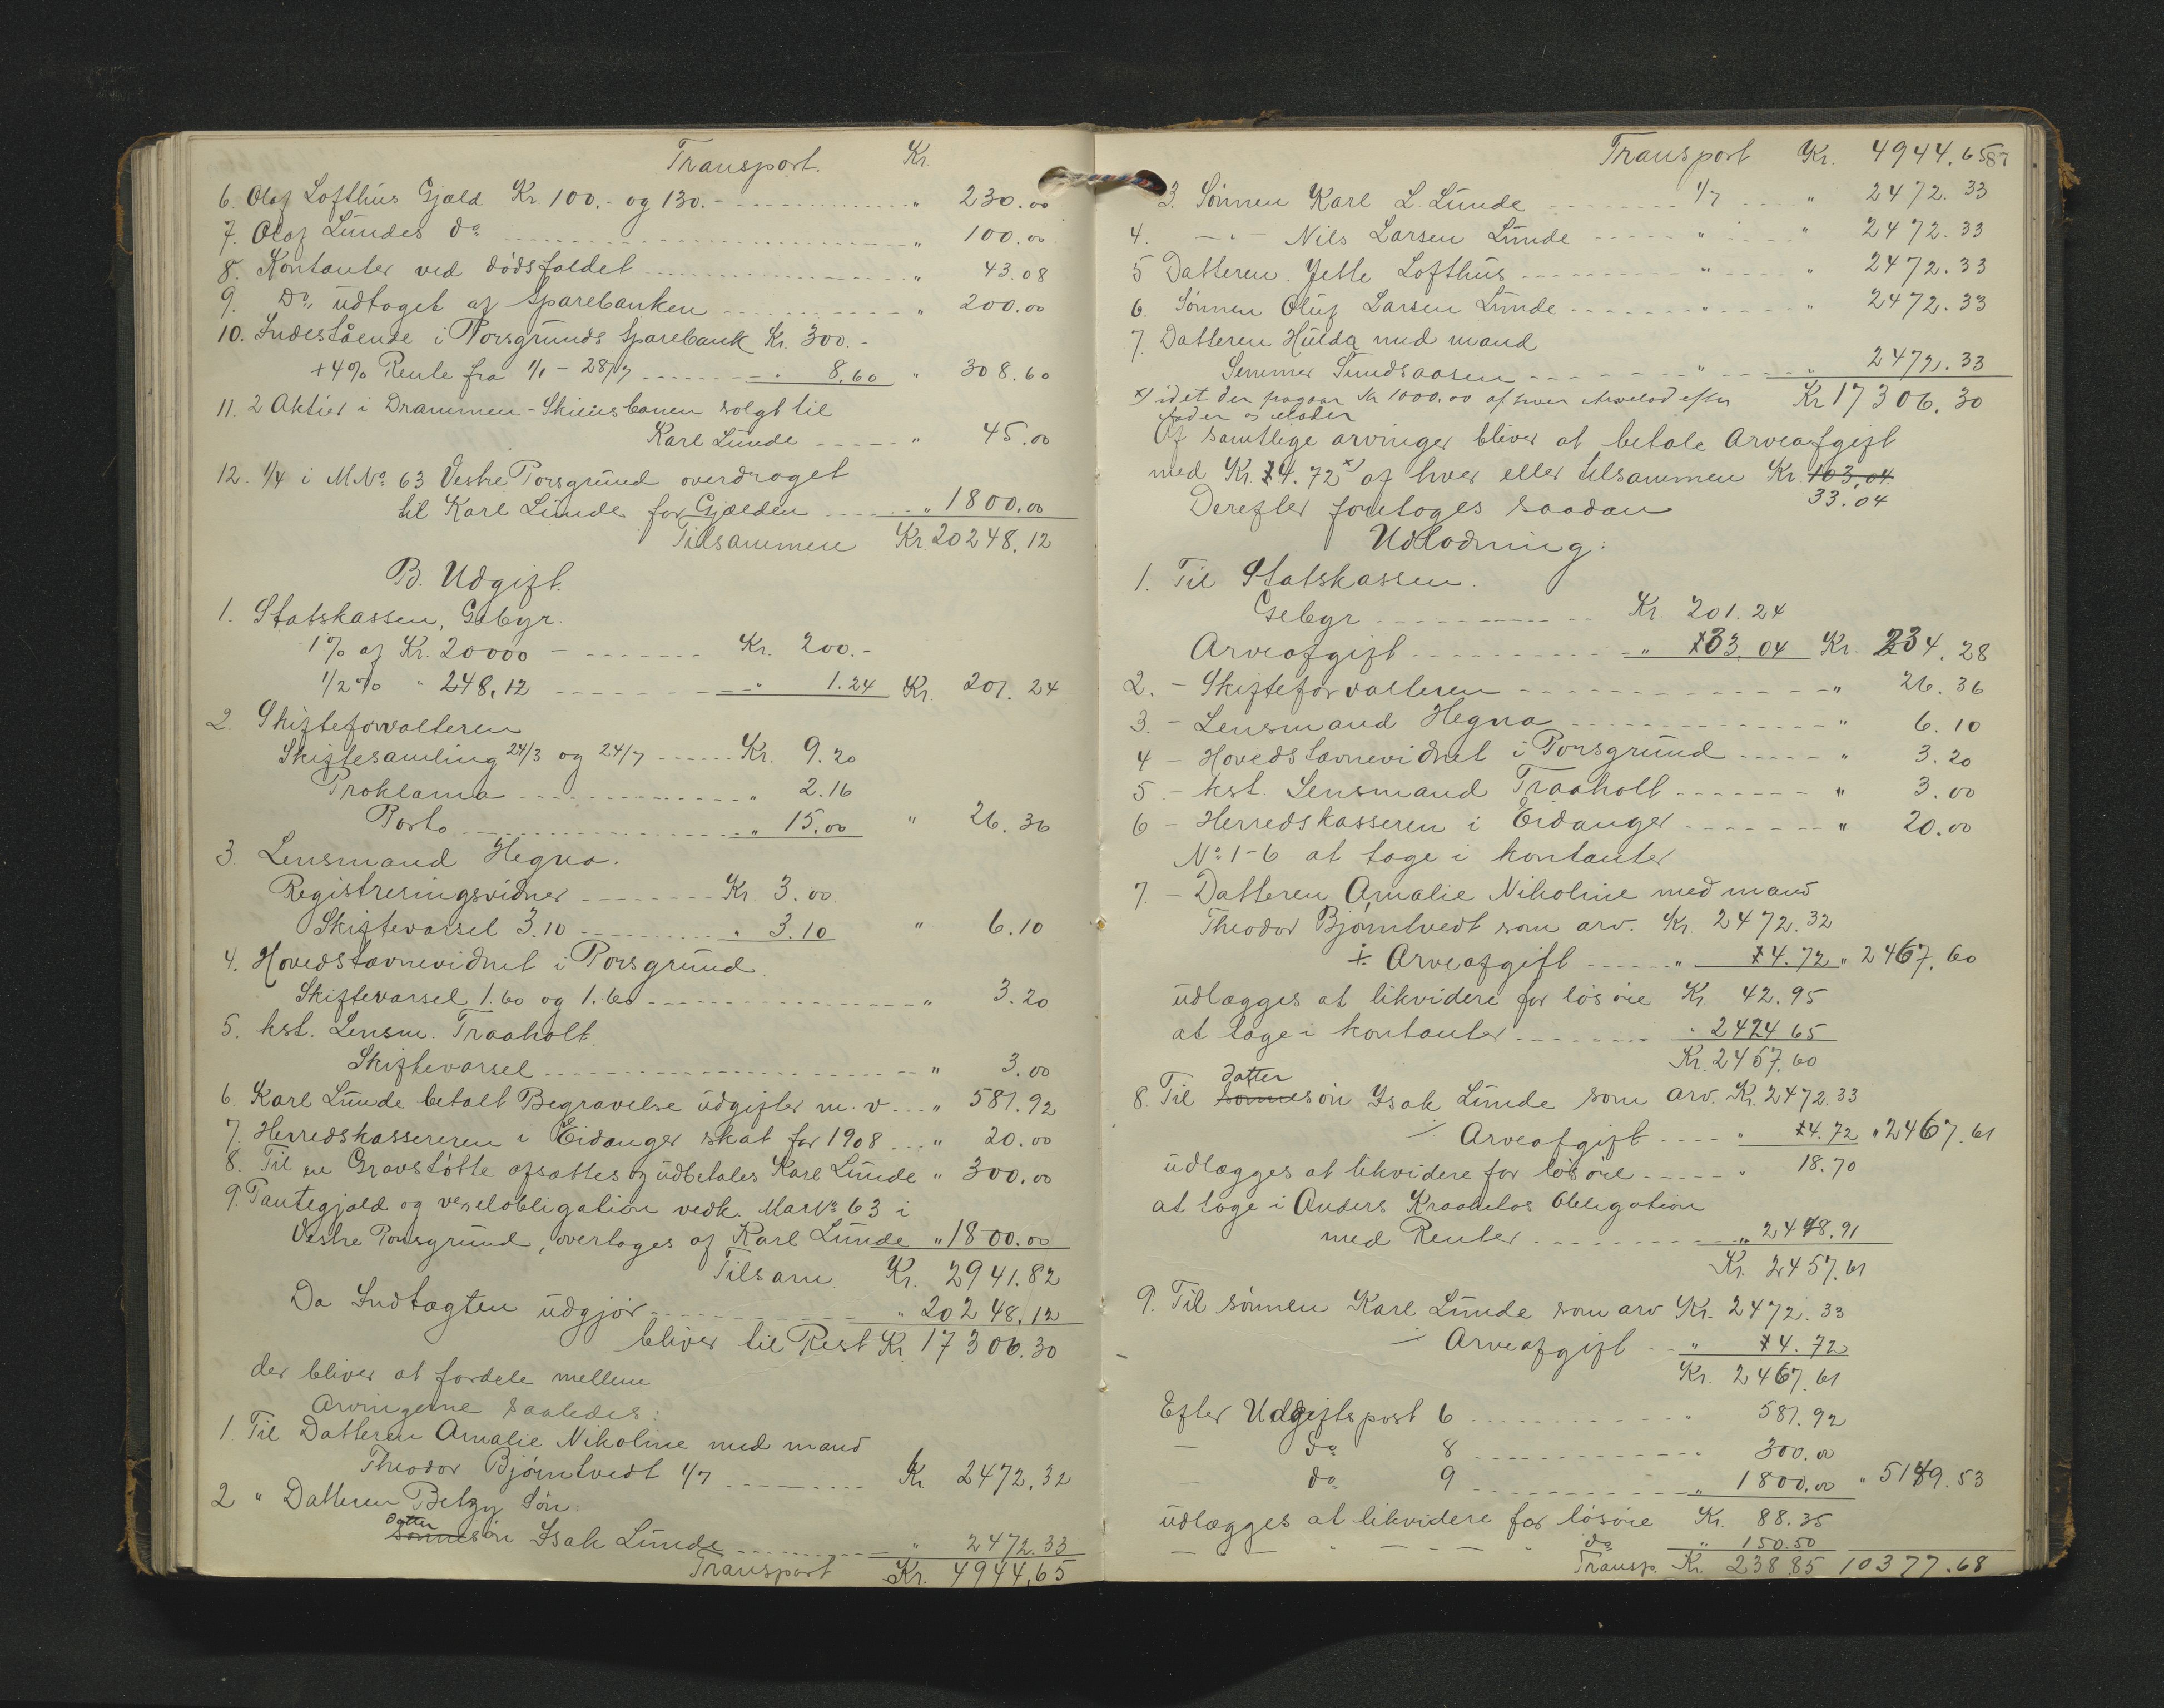 Transport. Kr.
6. Olaf Lofthus Gjæld Kr 100.- og 130.- " 230.00
7. Olaf Lundes do " 100.00
8. Kontanter ved dødsfaldet " 43.08
9. Do, udtaget af Sparebanken " 200.00
10. Indestående i Porsgrunds Sparebank Kr. 300.-
+ 4% Rente fra 1/1 - 28/7 " 8.60 " 308.60
11. 2 Aktier i Drammen-Skiensbanen solgt til
Karl Lunde " 45.00
12. 1/4 i M No 63 Vestre Porsgrund overdraget
til Karl Lunde for Gjælden " 1800.00
Tilsammen Kr. 20248.12
B. Udgift.
1. Statskassen, Gebyr.
1% af Kr. 20000 - Kr. 200.-
1/2% " 248,12 " 1.24 Kr. 201.24
2. Skifteforvalteren
Skiftesamling 24/3 og 24/7 Kr. 9.20
Proklama " 2.16
Porto " 15.00 " 26.36
3. Lensmand Hegna.
Registreringsvidner Kr. 3.00
Skiftevarsel 3.10 " 3.10 " 6.10
4. Hovedstævnevidnet i Porsgrund.
Skiftevarsel 1.60 og 1.60 " 3.20
5. kst. Lensm. Traaholt.
Skiftevarsel " 3.00
6. Karl Lunde betalt Begravelse udgifter m.v. " 581.92
7. Herredskassereren i Eidanger skat for 1908 " 20.00
8. Til en Gravstøtte afsættes og udbetales Karl Lunde " 300.00
9. Pantegjæld og vexelobligation vedk. Mar No 63 i
Vestre Porsgrund, overtages af Karl Lunde " 1800.00
Tilsam. Kr. 2941.82
Da Indtægten udgjør " 20248.12
bliver til Rest Kr. 17306.30
der bliver at fordele mellem
Arvingerne saaledes:
1. Til Datteren Amalie Nikoline med mand
Theodor Bjørntvedt 1/7 Kr 2472.32
2 " Datteren Betzy Søn:
datter
sønnesøn Isak Lunde " 2472.33
Transport Kr. 4944,65
Transport Kr. 4944.65 87
3. Sønnen Karl L. Lunde 1/7 " 2472.33
4. -"- Nils Larsen Lunde " " 2472.33
5 Datteren Jette Lofthus " " 2472.33
6. Sønnen Oluf Larsen Lunde " " 2472.33
7. Datteren Hulda med mand
Sundsaasen " " 2472.33
x) idet der paagaar Kr 1000.00 af hver Arvelod efter Kr 17306.30
fader og moder
Af samtlige arvinger bliver at betale Arveafgift
med Kr. 4.72 x) af hver eller tilsammen Kr. 103.04
33.04
Derefter foretages saadan
Udlodning:
1. Til Statskassen.
Gebyr Kr. 201.24
Arveafgift " 33.04 Kr. 234.28
2. - Skifteforvalteren " 26.36
3. - Lensmand Hegna " 6.10
4 - Hovedstævnevidnet i Porsgrund " 3.20
5 - kst. Lensmand Traaholt " 3.00
6 - Herredskasseren i Eidanger " 20.00
No 1-6 at tage i kontanter
7. - Datteren Amalie Nikoline med mand
Theodor Bjørntvedt som arv. Kr. 2472.32
÷ Arveafgift " 4.72 " 2467.60
udlægges at likvidere for løsøre Kr. 42.95
at tage i kontanter " 2424 65
Kr. 2467.60
datter
8. Til sønnesøn Isak Lunde som arv. Kr. 2472.33
÷ Arveafgift " 4.72 " 2467.61
udlægges at likvidere for løsøre " 18.70
at tage i Anders Obligation
med Renter " 2448.91
Kr. 2457.61
9. Til sønnen Karl Lunde som arv Kr. 2472.33
÷ Arveafgift " 4.72
Kr. 2467.61
Efter Udgiftspost 6 " 581.92
- do 8 " 300.00
- do 9 " 1800.00 " 5149.53
udlægges at likvidere for løsøre Kr. 88.35
- - " - - - " do " 150.50
Transp. Kr. 238.85 10377.68